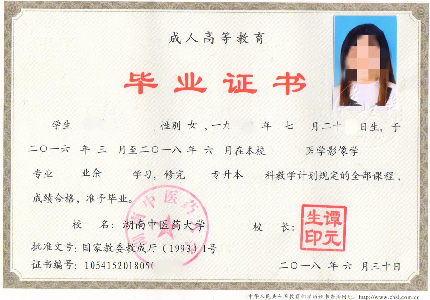 成人高等教育
毕业证书
学生 性别 女 ，一九 年 七 月二十 日生，于
二〇一六 年 三 月至二〇一八 年 六 月在本校 医学影像学
专业 业余 学习，修完 专升本 科教学计划规定的全部课程，
成绩合格，准予毕业。
校 名：湖南中医药大学 校 长：
谭元生印
批准文号：国家教委教成厅（1993）1号
证书编号：1054152018050
二〇一八 年 六 月三十日